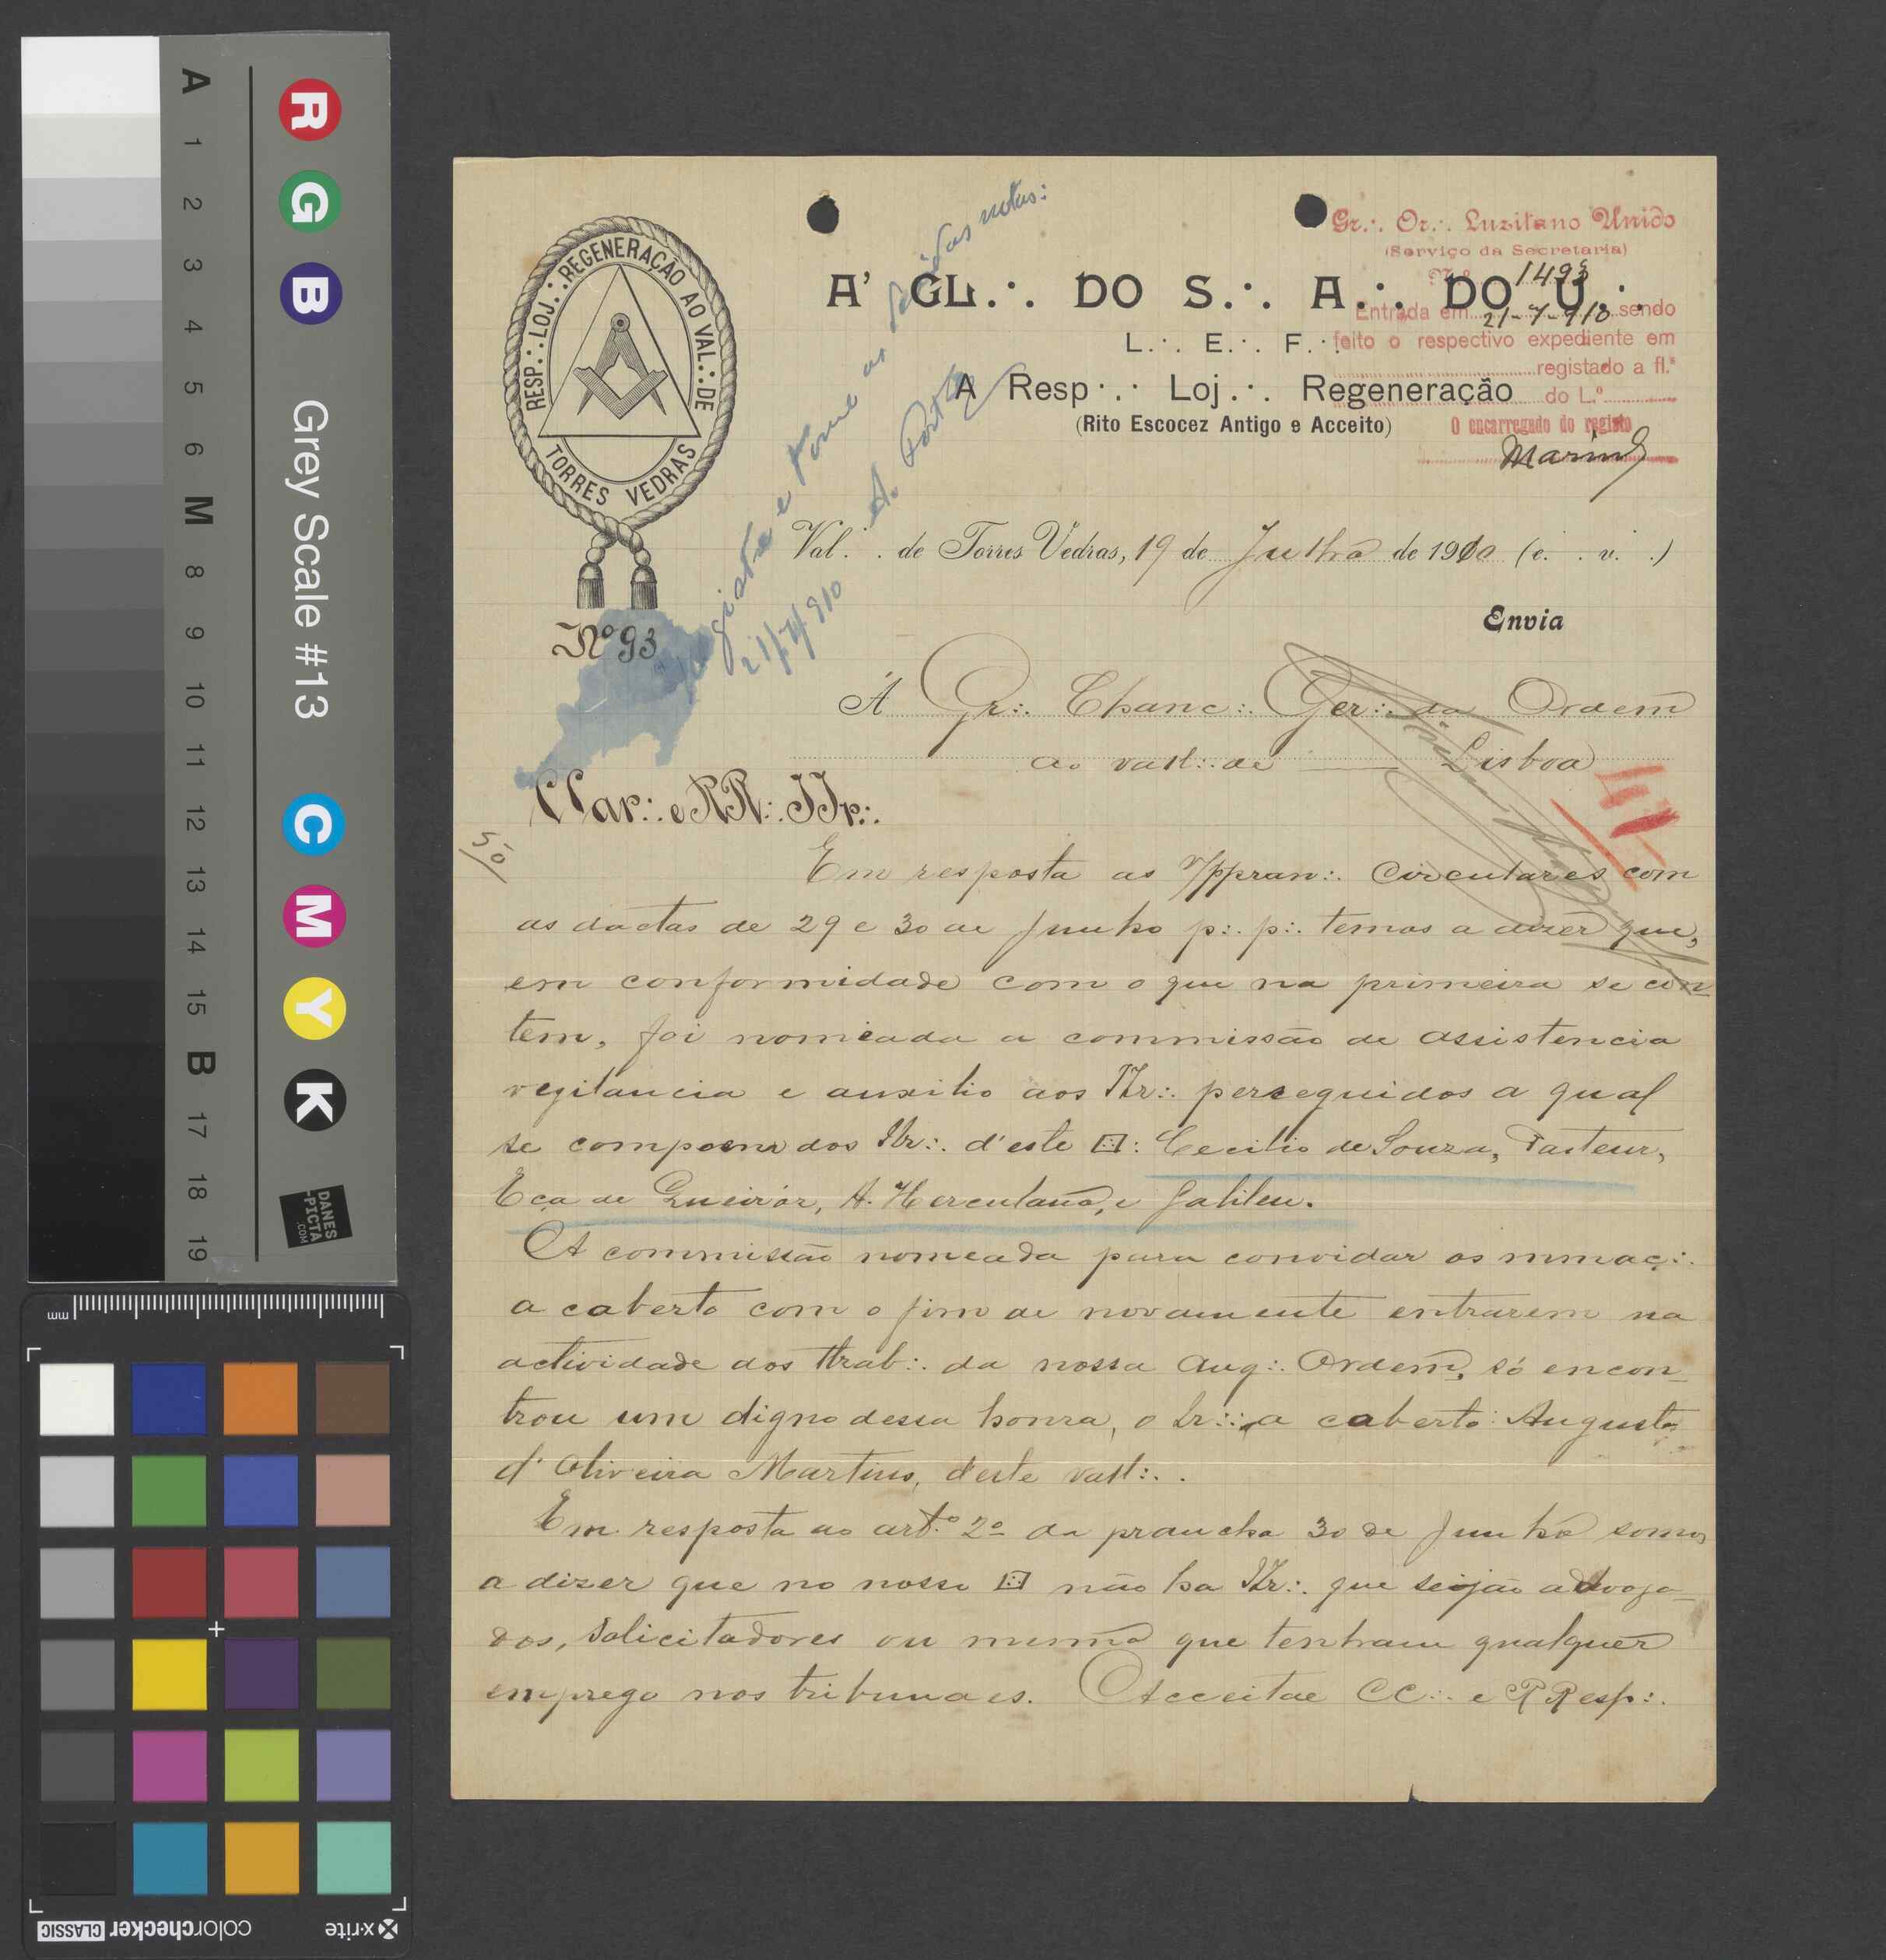 A 1 2 3 4 5 6 M 8 9 10 11 12 13 14 15 B 17 18 19
R G B Grey Scale #13 C M Y K
DANES
-PICTA
.COM
mm
x-rite colorchecker CLASSIC
RESP.·. LOJ.·. REGENERAÇÃO AO VAL.·. DE
TORRES VEDRAS
Gr.·. Or.·. Luzitano Unido
(Serviço da Secretaria)
N.º 1493
Entrada em 21-7-910 sendo
feito o respectivo expediente em
registado a fl.ª
do L.º
O encarregado do registo
Marinh
A' GL.·. DO S.·. A.·. DO U.·.
L.·. E.·. F.·.
A Resp.·. Loj.·. Regeneração
(Rito Escocez Antigo e Acceito)
Registre e tome as notas:
21/7/910
Val.·. de Torres Vedras, 19 de Julho de 1910 (e.·. v.·.)
Envia
Nº 93
Á Gr.·. Chanc.·. Ger.·. da Ordem
ao vall.·. de Lisboa
CCar.·. e RR.·. IIr.·.
50
Em resposta as Ppran.·. Circulares com
as dactas de 29 e 30 de Junho p.·. p.·. temos a dizer que,
em conformidade com o que na primeira se con
tem, foi nomeada a commissão de assistencia
vegilancia e auxilio aos IIr.·. perseguidos a qual
se compoem dos IIr.·. d'este [.·.]: Cecilio de Souza, Pasteur,
Eça de Queiróz, A. Herculano, e Galileu.
A commissão nomeada para convidar os mmaç.·.
a coberto com o fim de novamente entrarem na
actividade dos ttrab.·. da nossa Aug.·. Ordem, só encon-
trou um digno dessa honra, o Ir.·. a coberto Augusto
d'Oliveira Martins, d'este vall.·..
Em resposta ao artº 2º da prancha 30 de Junho somos
a dizer que no nosso [.·.] não ha IIr.·. que sejão advoga-
dos, solicitadores ou mesmo que tenham qualquer
emprego nos tribunaes. Acceitae CC.·. e RResp.·.